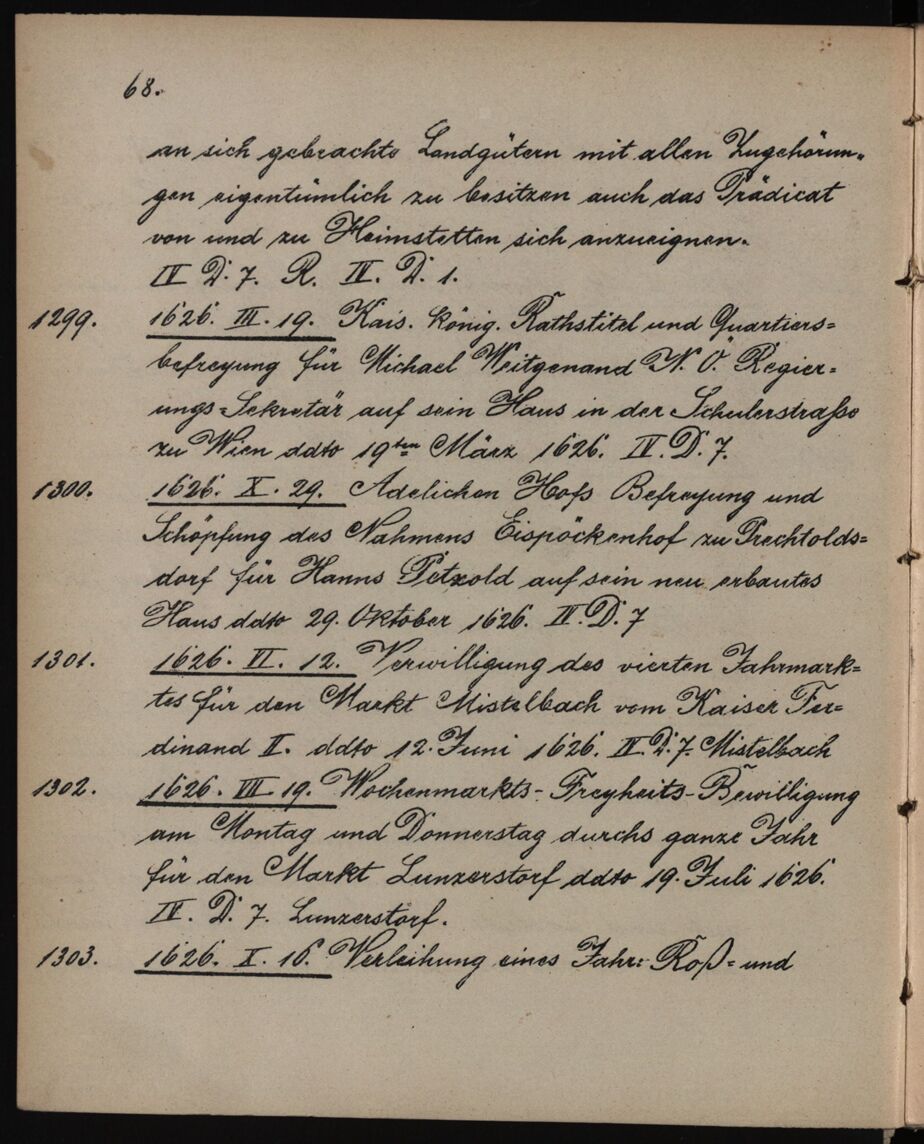 68.
an sich gebrachte Landgütern mit allen Zugehörun„
gen eigentümlich zu besitzen auch das Prädicat
von und zu Heimstetten sich anzueignen.
IV D. 7. R. IV. D. 1.
1299. 1626. III. 19. Kais. König. Rathstitel und Quartiers=
befreyung für Michael Weitgenand N. Ö. Regier=
ungs=Sekretär auf sein Haus in der Schulerstraße
zu Wien ddto 19ten März 1626. IV. D. 7.
1300. 1626. X. 29. Adelichen Hofs Befreyung und
Schöpfung des Nahmens Eispöckenhof zu Prechtolds=
dorf für Hanns Petzold auf sein neu erbautes
Haus ddto 29. Oktober 1626. IV. D. 7
1301. 1626. VI. 12. Verwilligung des vierten Jahrmark=
tes für den Markt Mistelbach vom Kaiser Fer=
dinand II. ddto 12. Juni 1626. IV. D. 7. Mistelbach
1302. 1626. VII 19. Wochenmarkts-Freyheits-Bewilligung
am Montag und Donnerstag durchs ganze Jahr
für den Markt Lunzerstorf ddto 19. Juli 1626.
IV. D. 7. Lunzerstorf.
1303. 1626. X. 16. Verleihung eines Jahr= Roß= und